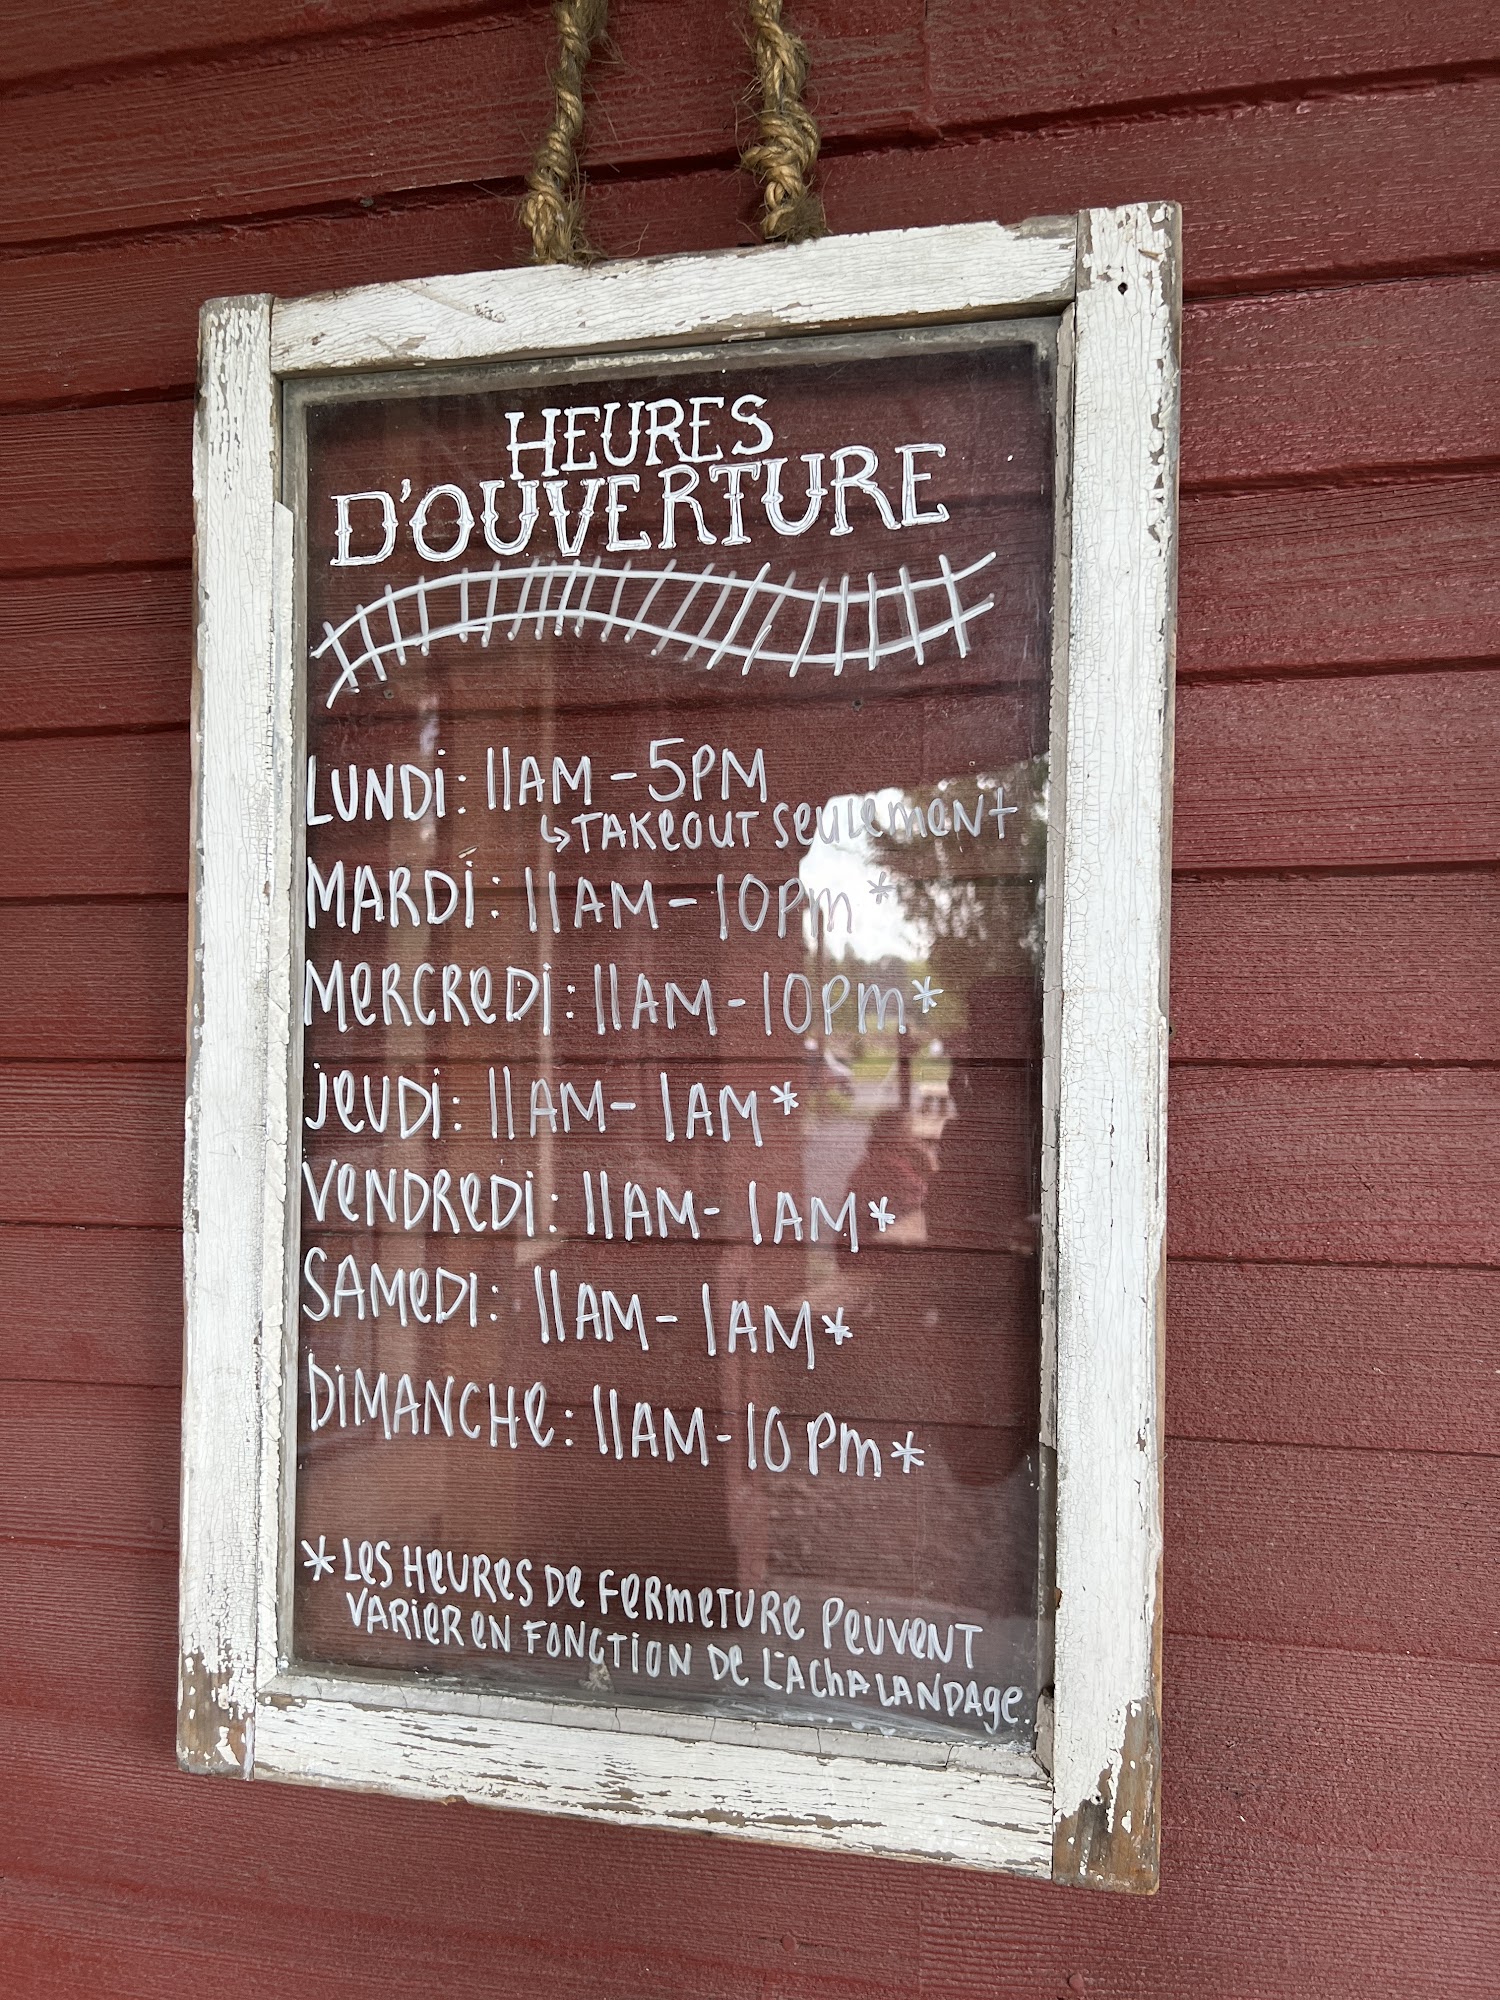 HEURES
D'OUVERTURE
LUNDI: 11AM-5PM
↳TAKEOUT SEULEMENT
MARDI: 11AM-10PM*
MERCREDI: 11AM-10PM*
JEUDI: 11AM-1AM*
VENDREDI: 11AM-1AM*
SAMEDI: 11AM-1AM*
DIMANCHE: 11AM-10PM*
*LES HEURES DE FERMETURE PEUVENT
VARIER EN FONCTION DE L'ACHALANDAGE.